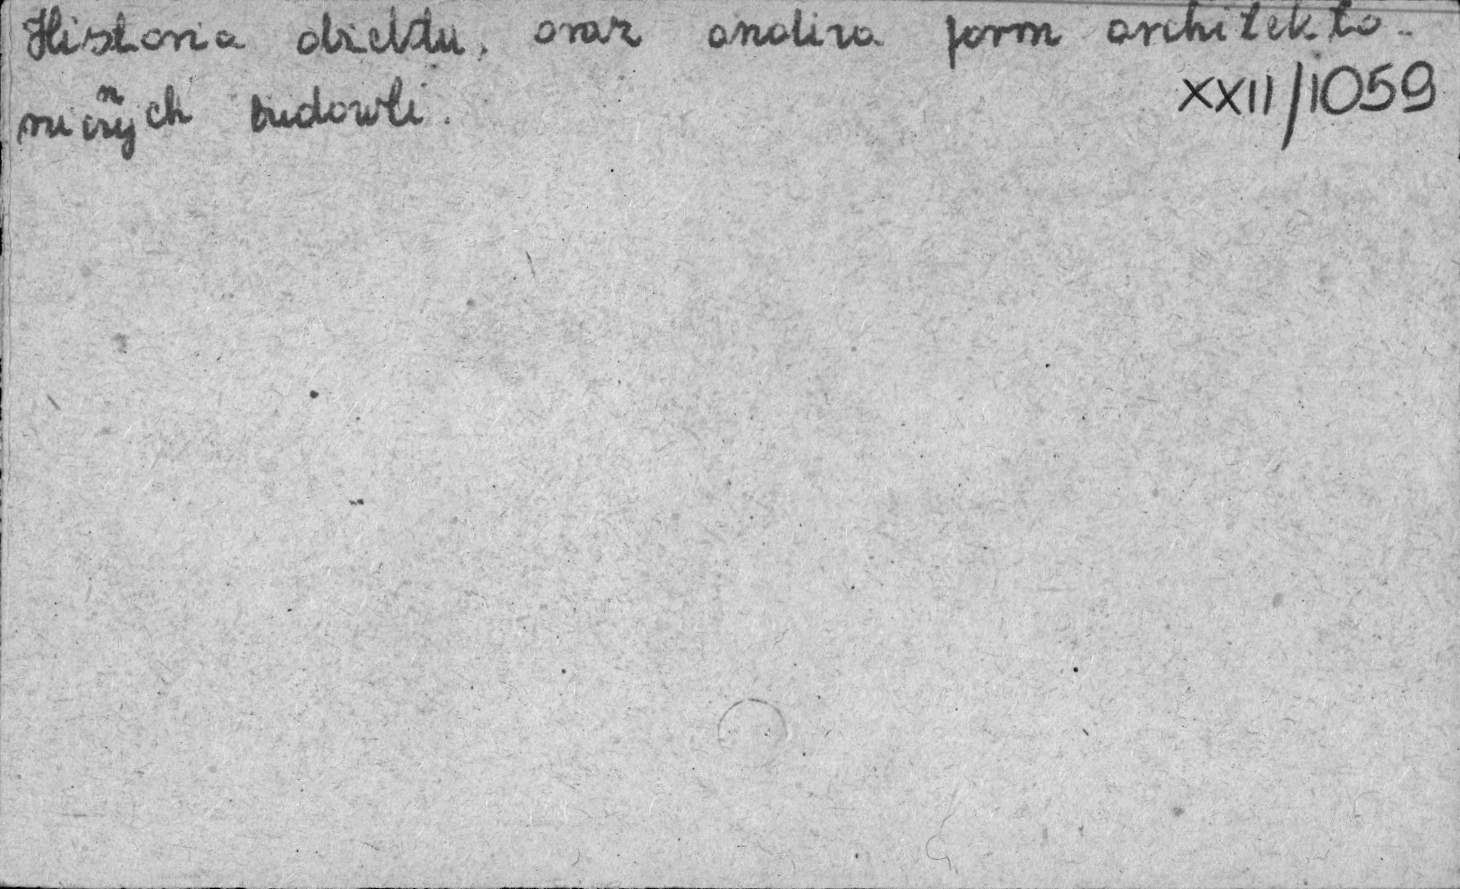 Historia obiektu, oraz analiza form architekto-
nicznych budowli.
XXII/1059